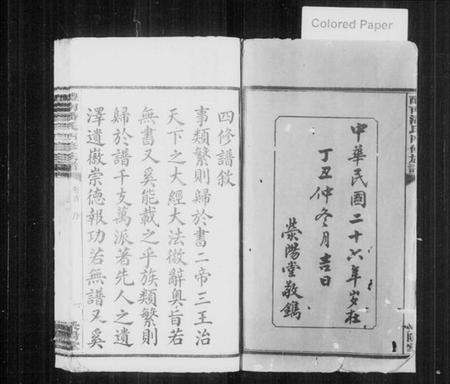 Colored Paper
中華民國二十六年歲在
丁丑仲冬月吉日
滎陽堂敬鐫
四修譜敘
事類繁則歸於書二帝三王治
天下之大經大法微辭奧旨若
無書又奚能載之乎族類繁則
歸於譜千支萬派著先人之遺
澤遺徽崇德報功若無譜又奚